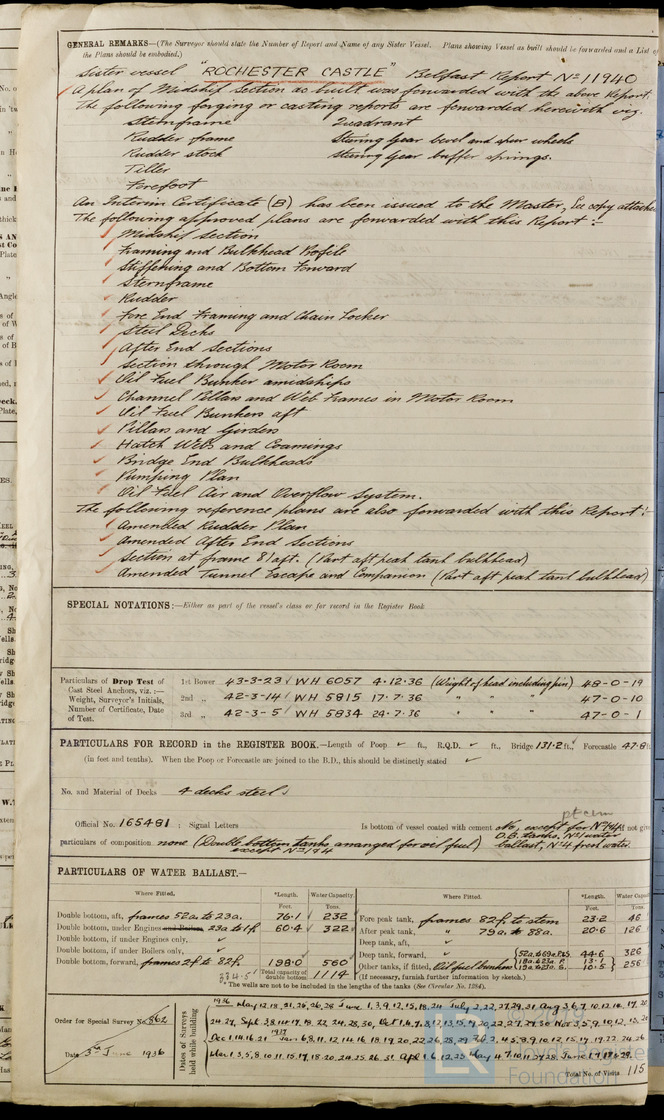 GENERAL REMARKS—(The Surveyor should state the Number of Report and Name of any Sister Vessel. Plans showing Vessel as built should be forwarded and a List of
the Plans should be embodied.)
Sister vessel "ROCHESTER CASTLE" Belfast Report No 11940
A plan of Midship Section as built was forwarded with the above Report.
The following forging or casting reports are forwarded herewith viz.
Sternframe Quadrant
Rudder frame Steering Gear bevel and spur wheels
Rudder stock Steering Gear buffer springs.
Tiller
Forefoot
An Interim Certificate (B) has been issued to the Master, See copy attached
The following approved plans are forwarded with this Report :-
Midship Section
Framing and Bulkhead Profile
Stiffening and Bottom Forward
Sternframe
Rudder
Fore End Framing and Chain Locker
Steel Decks
After End Sections
Section through Motor Room
Oil Fuel Bunker amidships
Channel Pillars and Web Frames in Motor Room
Oil Fuel Bunkers aft
Pillars and Girders
Hatch Webs and Coamings
Bridge End Bulkheads
Pumping Plan
Oil Fuel Air and Overflow System.
The following reference plans are also forwarded with this Report :-
Amended Rudder Plan
Amended After End Sections
Section at frame 81 aft. (Part aft peak tank bulkhead)
Amended Tunnel Escape and Companion (Part aft peak tank bulkhead)
SPECIAL NOTATIONS :—Either as part of the vessel's class or for record in the Register Book
Particulars of Drop Test of
Cast Steel Anchors, viz. :—
Weight, Surveyor's Initials,
Number of Certificate, Date
of Test.
1st Bower 43-3-23 WH 6057 4.12.36 (Weight of head including pin) 48-0-19
2nd " 42-3-14 WH 5815 17.7.36 " " " 47-0-10
3rd " 42-3-5 WH 5834 24.7.36 " " " 47-0-1
PARTICULARS FOR RECORD in the REGISTER BOOK.—Length of Poop ft., R.Q.D. ft., Bridge 131.2 ft., Forecastle 47.8 ft
(in feet and tenths). When the Poop or Forecastle are joined to the B.D., this should be distinctly stated
No. and Material of Decks 4 decks steel
pt cem
Official No. 165481 ; Signal Letters Is bottom of vessel coated with cement No, except for No 1&4 if not give
D.B. tanks. No 1 water
particulars of composition none (Double bottom tanks arranged for oil fuel) ballast, No 4 fresh water.
except No 1&4
PARTICULARS OF WATER BALLAST.—
Where Fitted. *Length. Water Capacity. Where Fitted. *Length. Water Capacity
Feet. Tons. Feet. Tons.
Double bottom, aft, frames 52a to 23a. 76.1 232 Fore peak tank, frames 82f to stem 23.2 46
Double bottom, under Engines and Boilers, 23a to 1f 60.4 322 After peak tank, " 79a to 88a. 20.6 126
Double bottom, if under Engines only, Deep tank, aft,
Double bottom, if under Boilers only, Deep tank, forward, 52a to 69a P&S 44.6 326
Double bottom, forward, frames 2f to 82f 198.0 560 Other tanks, if fitted, Oil fuel bunkers 19a to 23a. P. 13.1 256
19a to 23a. S. 10.5
334.5 Total capacity of double bottom 1114 (If necessary, furnish further information by sketch.)
* The wells are not to be included in the lengths of the tanks (See Circular No. 1284).
Order for Special Survey No. 862
Date 3rd June 1936
Dates of Surveys
held while building
Total No. of Visits 115
© 2019
Lloyd's Register
Foundation
LR